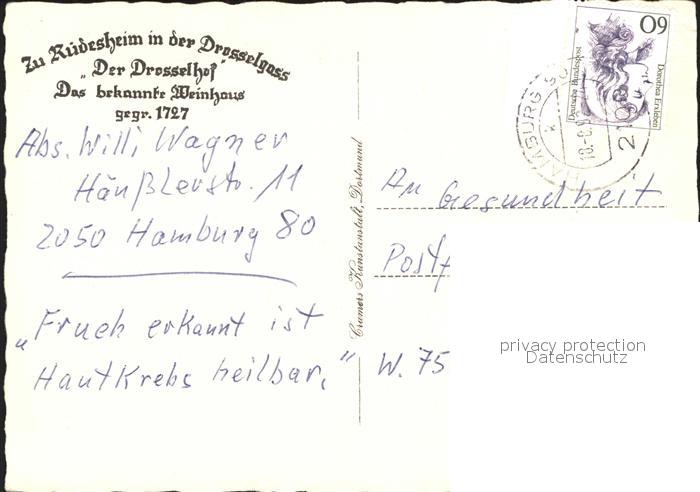 Zu Rüdesheim in der Drosselgass
„Der Drosselhof"
Das bekannte Weinhaus
gegr. 1727
Abs. Willi Wagner
Häußlerstr. 11
2050 Hamburg 80
„Frueh erkannt ist
HautKrebs heilbar."
Cramers Kunstanstalt, Dortmund
60
Deutsche Bundespost
Dorothea Erxleben
HAMBURG
An Gesundheit
Postf
W. 75
privacy protection
Datenschutz